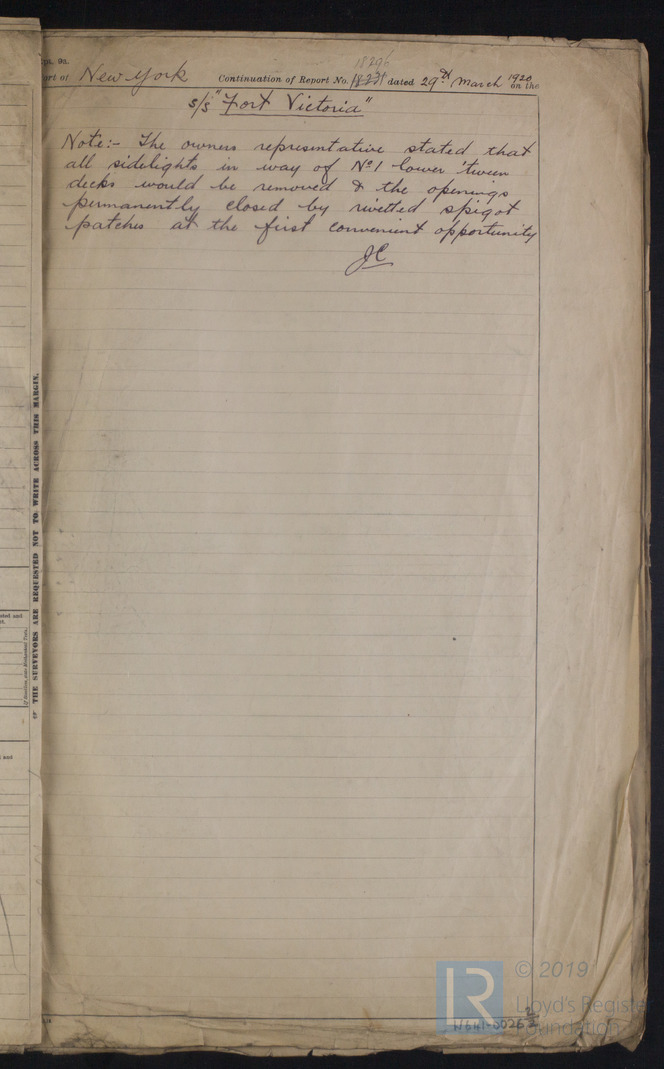 Rpt. 9a.
Port of New York Continuation of Report No. 18296 dated 29th March 1920 on the
s/s "Fort Victoria"
Note:- The owners representative stated that
all sidelights in way of No 1 lower 'tween
decks would be removed & the openings
permanently closed by rivetted spigot
patches at the first convenient opportunity
JC
THE SURVEYORS ARE REQUESTED NOT TO WRITE ACROSS THIS MARGIN.
© 2019
Lloyd's Register
Foundation